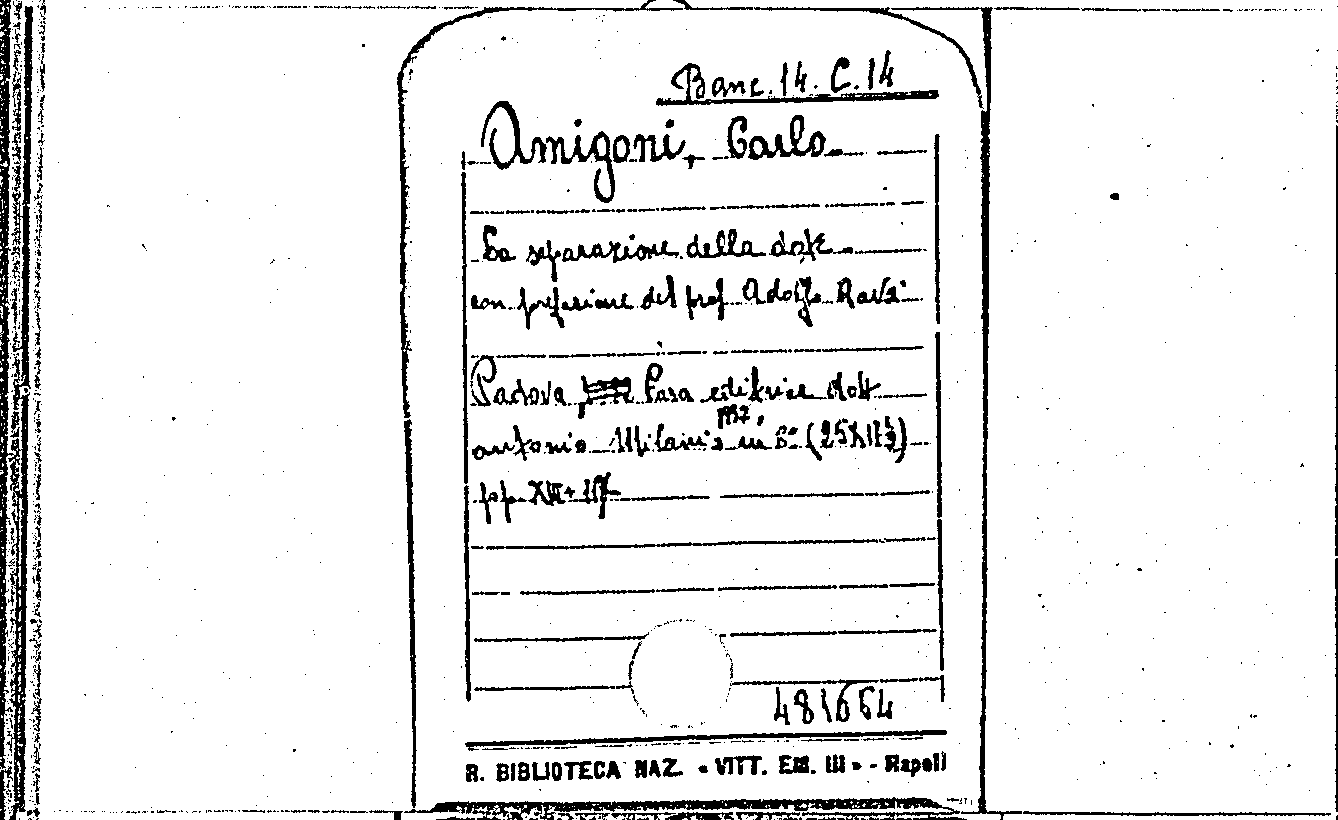 Banc. 14. C. 14
Amigoni, Carlo
La separazione della dote
con prefazione del prof Adolfo Ravà
Padova, Casa editrice dott
Antonio Milani 1937, in 8° (25X17½)
pp. XVI+117
481664
R. BIBLIOTECA NAZ. « VITT. EM. III » - Napoli